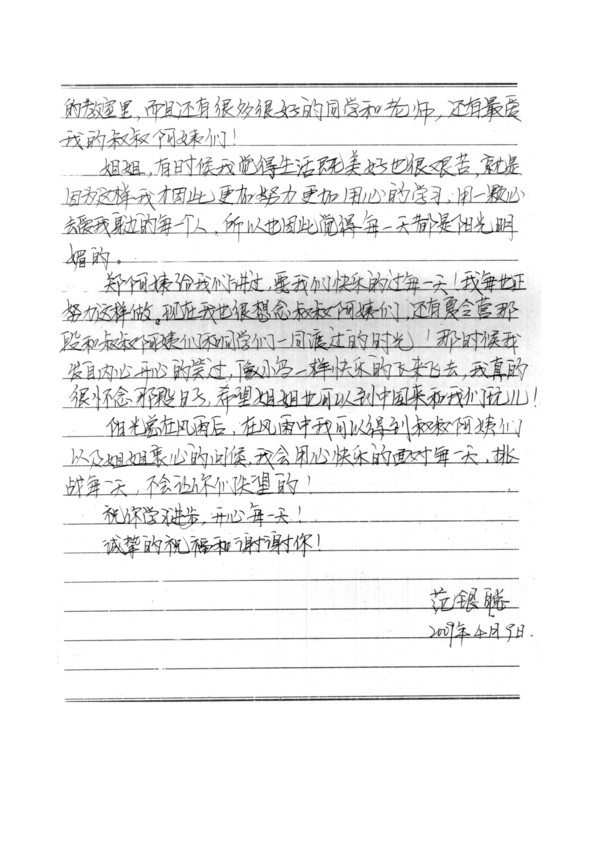 的教室里,而且还有很多很好的同学和老师,还有最爱
我的叔叔阿姨们!
姐姐,有时候我觉得生活既美好也很艰苦,就是
因为这样我才因此更加努力更加用心的学习,用一颗心
去爱我身边的每个人,所以也因此觉得每一天都是阳光明
媚的。
郑阿姨给我们讲过,要我们快乐的过每一天!我每也正
努力这样做。现在我也很想念叔叔阿姨们,还有夏令营那
段和叔叔阿姨们和同学们一同渡过的时光!那时候我
发自内心开心的笑过,像小鸟一样快乐的飞来飞去,我真的
很怀念那段日子,希望姐姐也可以到中国来和我们玩儿!
阳光总在风雨后,在风雨中我可以得到叔叔阿姨们
以及姐姐衷心的问候,我会用心快乐的面对每一天,挑
战每一天,不会让你们失望的!
祝你学习进步,开心每一天!
诚挚的祝福和谢谢你!
范银聪
2009年4月9日.